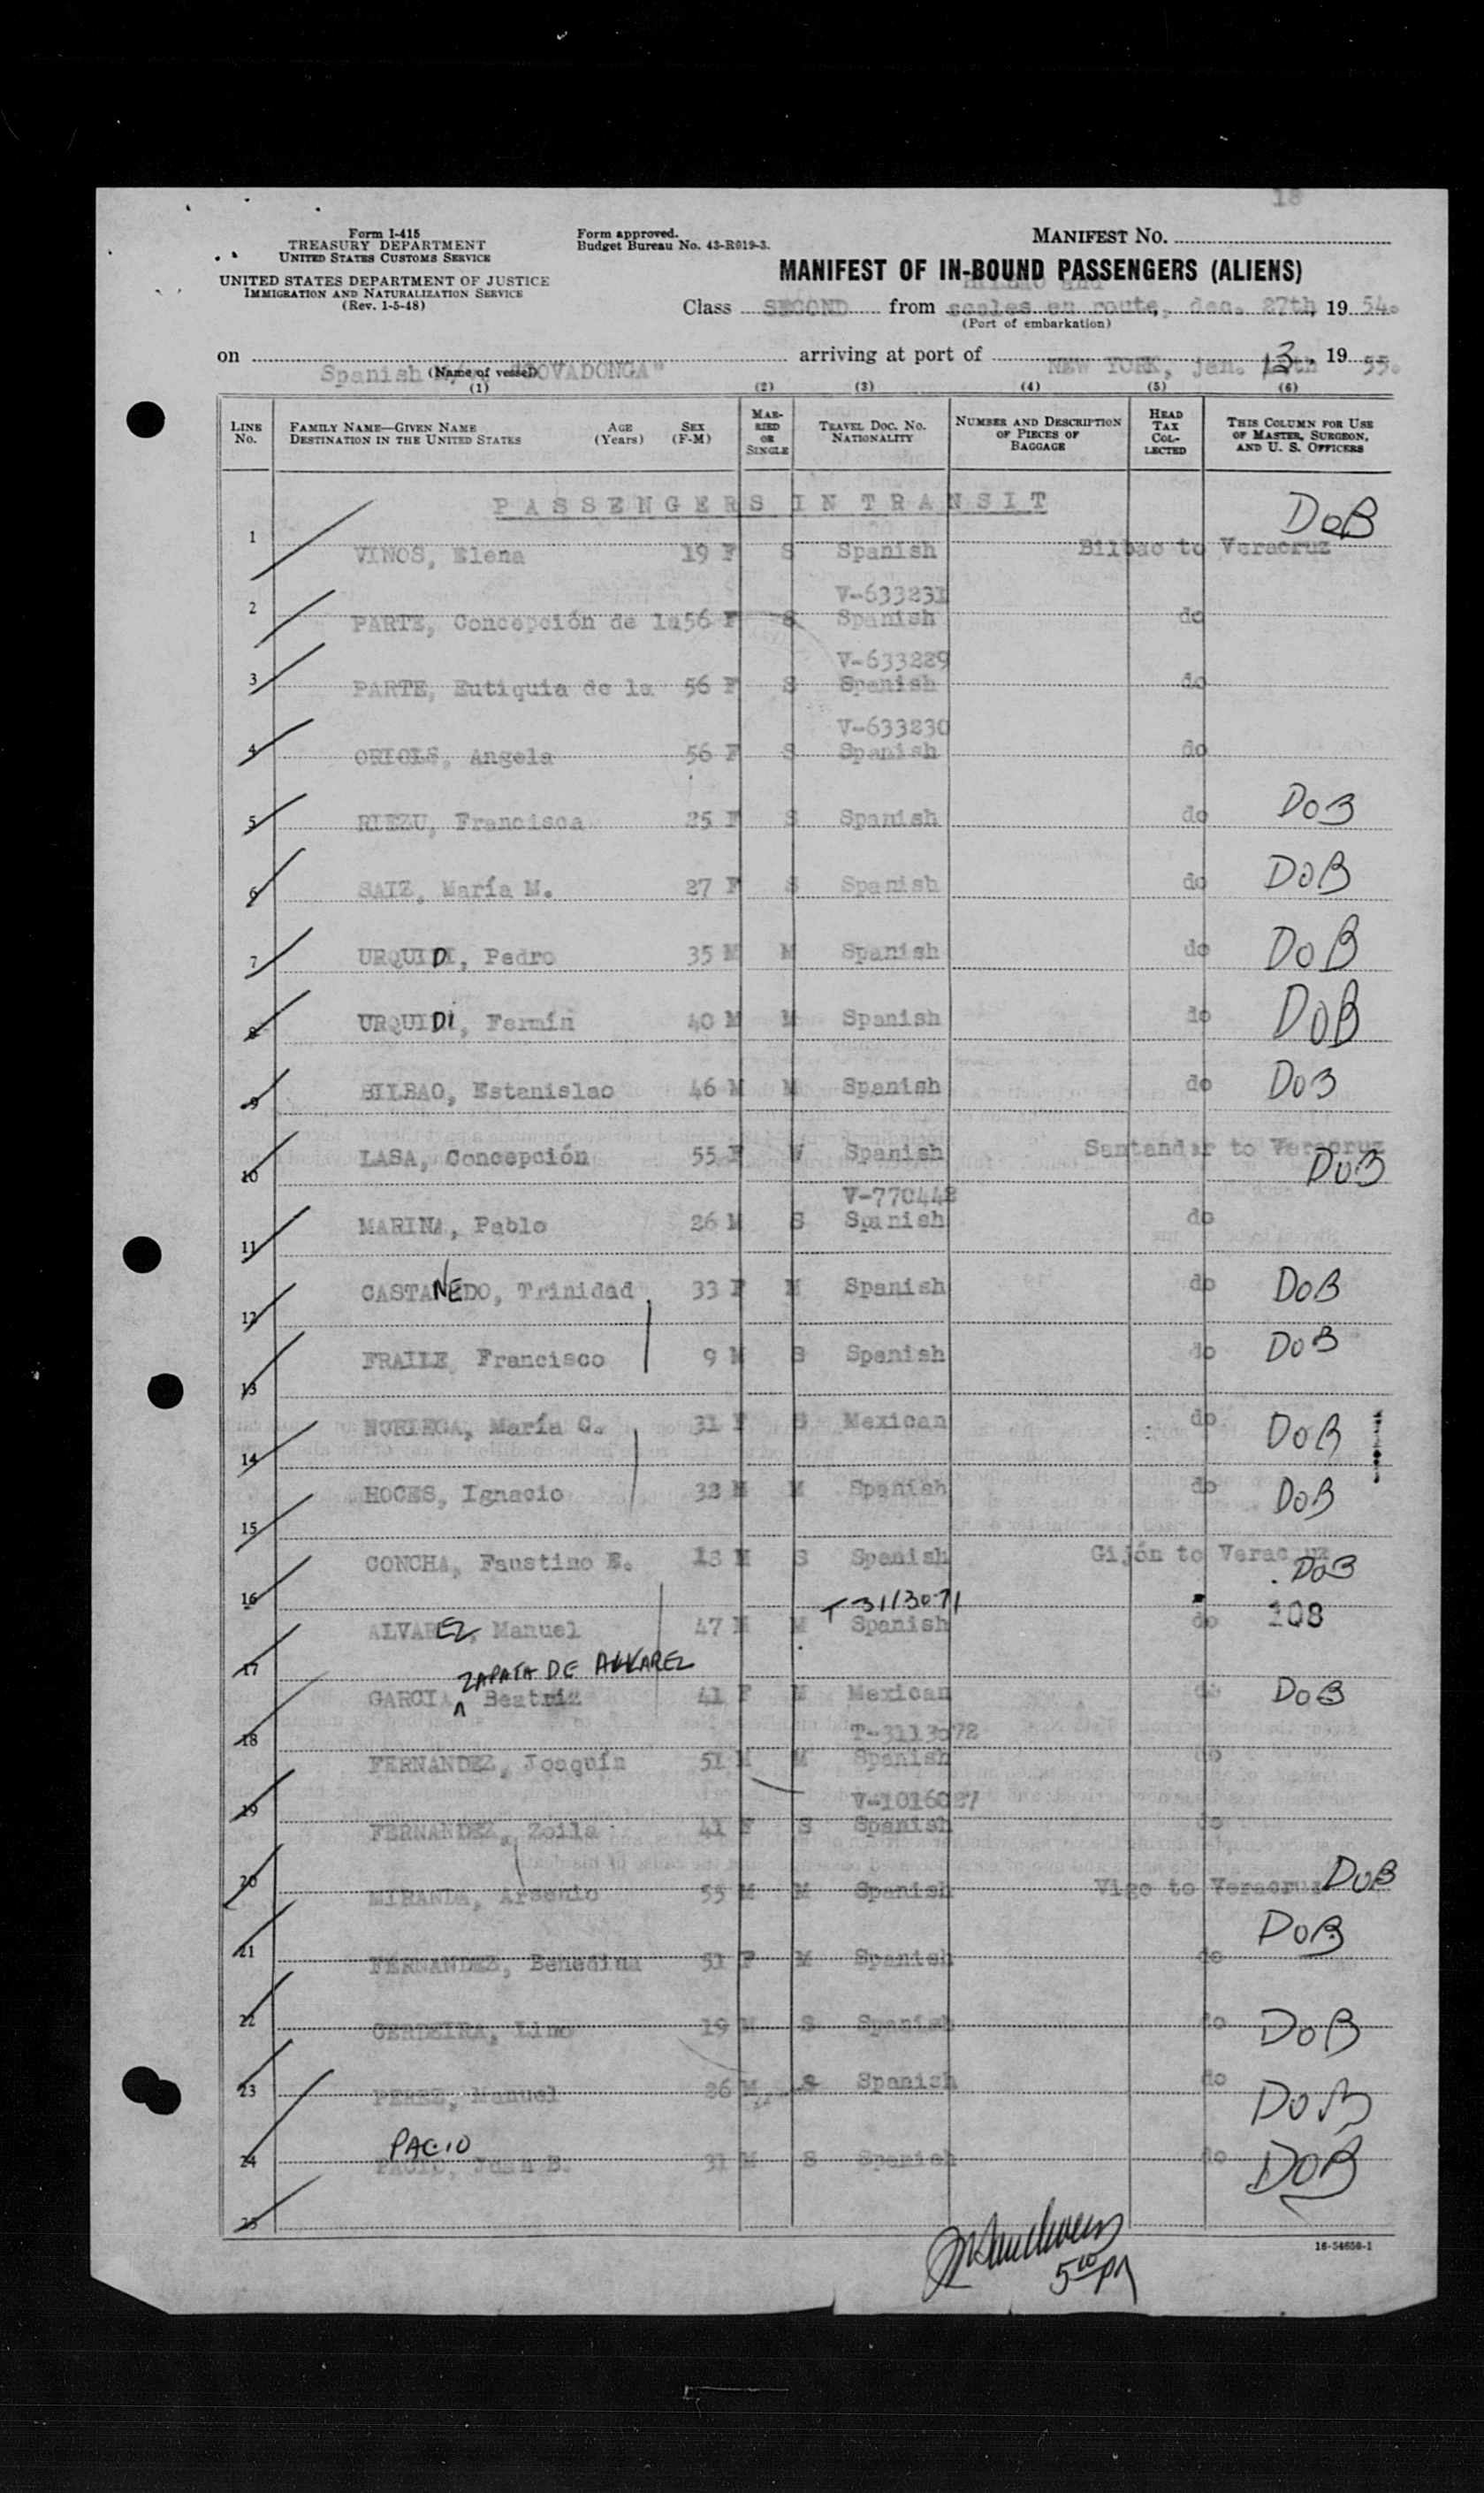 18
Form I-415
TREASURY DEPARTMENT
UNITED STATES CUSTOMS SERVICE
UNITED STATES DEPARTMENT OF JUSTICE
IMMIGRATION AND NATURALIZATION SERVICE
(Rev. 1-5-48)
Form approved.
Budget Bureau No. 43-R019-3.
MANIFEST NO.
MANIFEST OF IN-BOUND PASSENGERS (ALIENS)
Class SECOND from BILBAO and scales en route, dec. 27th, 19 54.
(Port of embarkation)
on Spanish "COVADONGA" arriving at port of NEW YORK, jan. 13 th, 19 55.
(Name of vessel)
(1) (2) (3) (4) (5) (6)
LINE No. FAMILY NAME—GIVEN NAME DESTINATION IN THE UNITED STATES AGE (Years) SEX (F-M) MARRIED OR SINGLE TRAVEL DOC. NO. NATIONALITY NUMBER AND DESCRIPTION OF PIECES OF BAGGAGE HEAD TAX COLLECTED THIS COLUMN FOR USE OF MASTER, SURGEON, AND U. S. OFFICERS
PASSENGERS IN TRANSIT
1 VINOS, Elena 19 F S Spanish Bilbao to Veracruz DOB
V-633231
2 PARTE, Concepción de la 56 F S Spanish do
V-633229
3 PARTE, Eutiquia de la 56 F S Spanish do
V-633230
4 ORIOLS, Angela 56 F S Spanish do
5 RIEZU, Francisca 25 F S Spanish do DOB
6 SAIZ, María M. 27 F S Spanish do DOB
7 URQUIDI, Pedro 35 M M Spanish do DOB
8 URQUIDi, Fermín 40 M M Spanish do DOB
9 BILBAO, Estanislao 46 M M Spanish do DOB
10 LASA, Concepción 55 F W Spanish Santander to Veracruz DOB
V-770442
11 MARINA, Pablo 26 M S Spanish do
12 CASTANEDO, Trinidad 33 F M Spanish do DOB
13 FRAILE Francisco 9 M S Spanish do DOB
14 NORIEGA, María C. 31 F S Mexican do DOB
15 HOCES, Ignacio 32 M M Spanish do DOB
16 CONCHA, Faustino E. 18 M S Spanish Gijón to Veracruz DOB
T-3113071
17 ALVAREZ, Manuel 47 M M Spanish do 108
ZAPATA DE ALVAREZ
18 GARCIA Beatriz 41 F M Mexican do DOB
T-3113072
19 FERNANDEZ, Joaquín 51 M M Spanish do
V-1016027
20 FERNANDEZ, Zoila 41 F S Spanish do
21 MIRANDA, Arsenio 55 M M Spanish Vigo to Veracruz DOB
22 FERNANDEZ, Benedina 51 F M Spanish do DOB
23 CERDEIRA, Lino 19 M S Spanish do DOB
24 PEREZ, Manuel 26 M S Spanish do DOB
PACIO
25 PACIO, Juan B. 31 M S Spanish do DOB
5 10 PM
16-54650-1